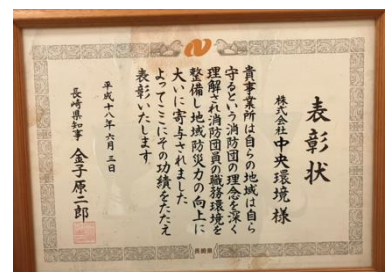 表彰状
株式会社 中央環境 様
貴事業所は自らの地域は自ら
守るという消防団の理念を深く
理解され消防団員の職務環境を
整備し地域防災力の向上に
大いに寄与されました
よってここにその功績をたたえ
表彰いたします
平成十八年六月三日
長崎県知事 金子原二郎
長崎県